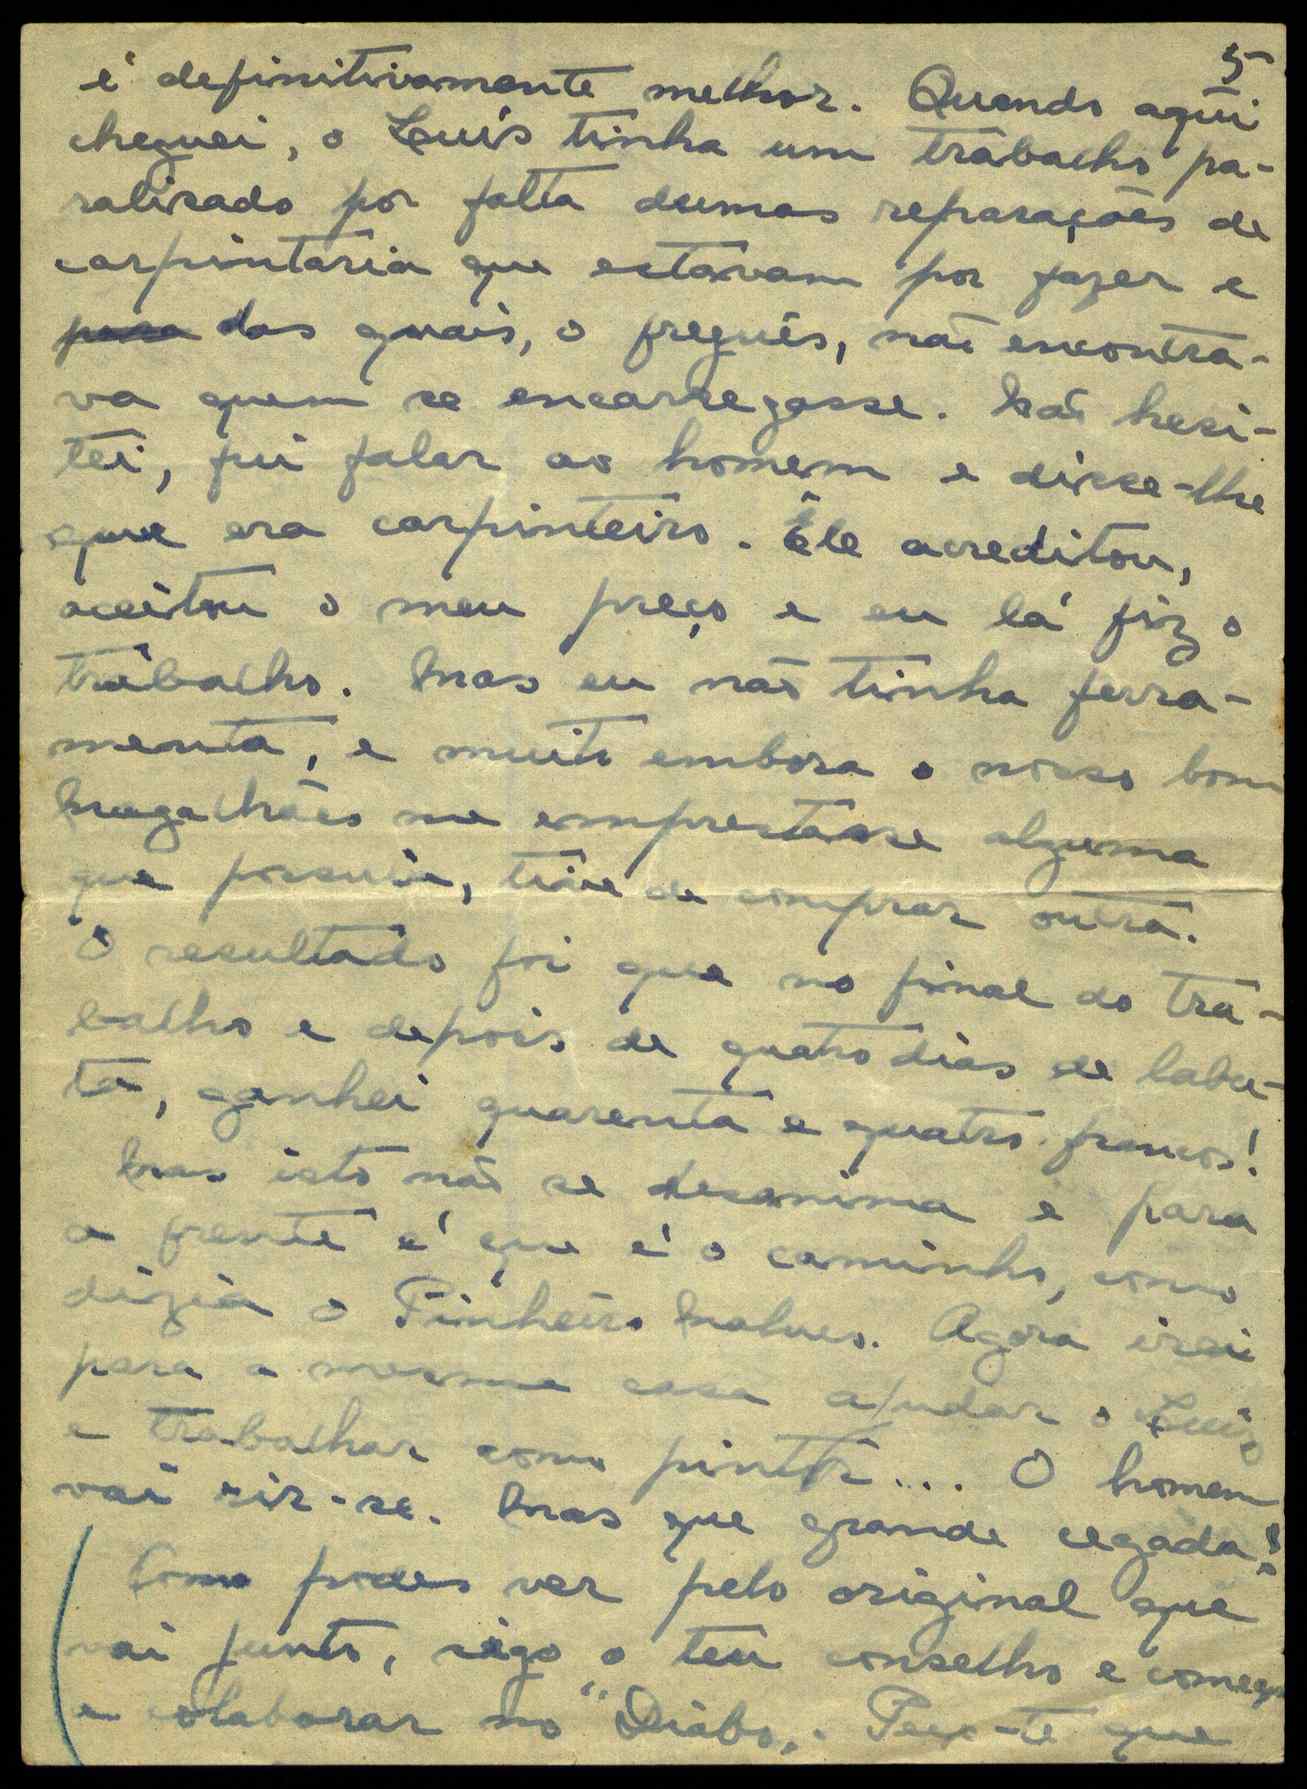 5
é definitivamente melhor. Quando aqui
cheguei, o Luís tinha um trabalho pa-
ralisado por falta dumas reparações de
carpintaria que estavam por fazer e
para das quais, o freguês, não encontra-
va quem se encarregasse. Não hesi-
tei, fui falar ao homem e disse-lhe
que era carpinteiro. Êle acreditou,
aceitou o meu preço e eu lá fiz o
trabalho. Mas eu não tinha ferra-
menta, e muito embora o nosso bom
Magalhães me emprestasse alguma
que possuia, tive de comprar outra.
O resultado foi que no final do tra-
balho e depois de quatro dias de labu-
ta, ganhei quarenta e quatro francos!
Mas isto não se desanima e para
a frente é que é o caminho, como
dizia o Pinheiro . Agora irei
para a mesma casa ajudar o Luís
e trabalhar como pintor... O homem
vai rir-se. Mas que grande cegada!
Como podes ver pelo original que
vai junto, sigo o teu conselho e começo
a colaborar no "Diabo". Peço-te que